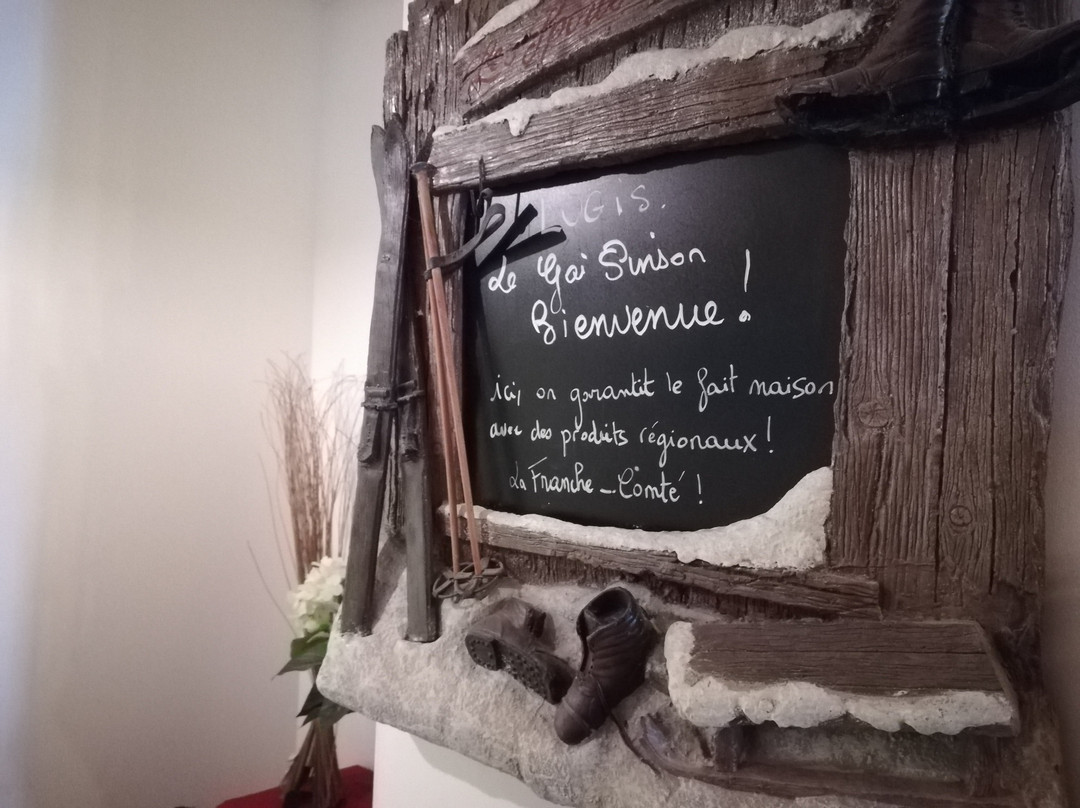 LUGIS.
Le Gai Pinson
Bienvenue !
ici, on garantit le fait maison
avec des produits régionaux !
La Franche-Comté !